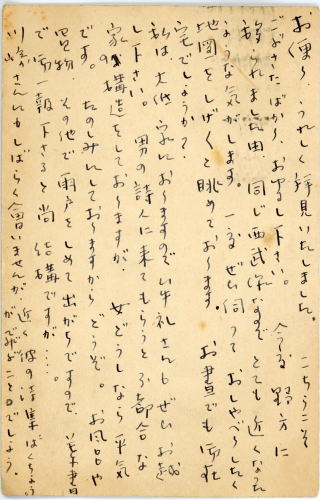 お便り、うれしく拝見いたしました。こちらこそ
ごぶさたばかり、お宥し下さい。今度 野方に
移られました由 同じ西武沿線なので とても近くなった
ような気がします。一度ぜひ伺って おしゃべりしたく
地図をしげしげと眺めております。お昼でも御在
宅でしょうか?
私は大低 家におりますので 牛礼さんもぜひお越
し下さい。男の詩人に来てもらうには不都合な
家の構造をしておりますが 女どうしなら平気
です。たのしみにしておりますから どうぞ。お風呂や
買物 その他で 雨戸をしめて出がちですので、葉書
で御一報下さると尚 結構ですが……。
川崎さんにもしばらく会いませんが、近く